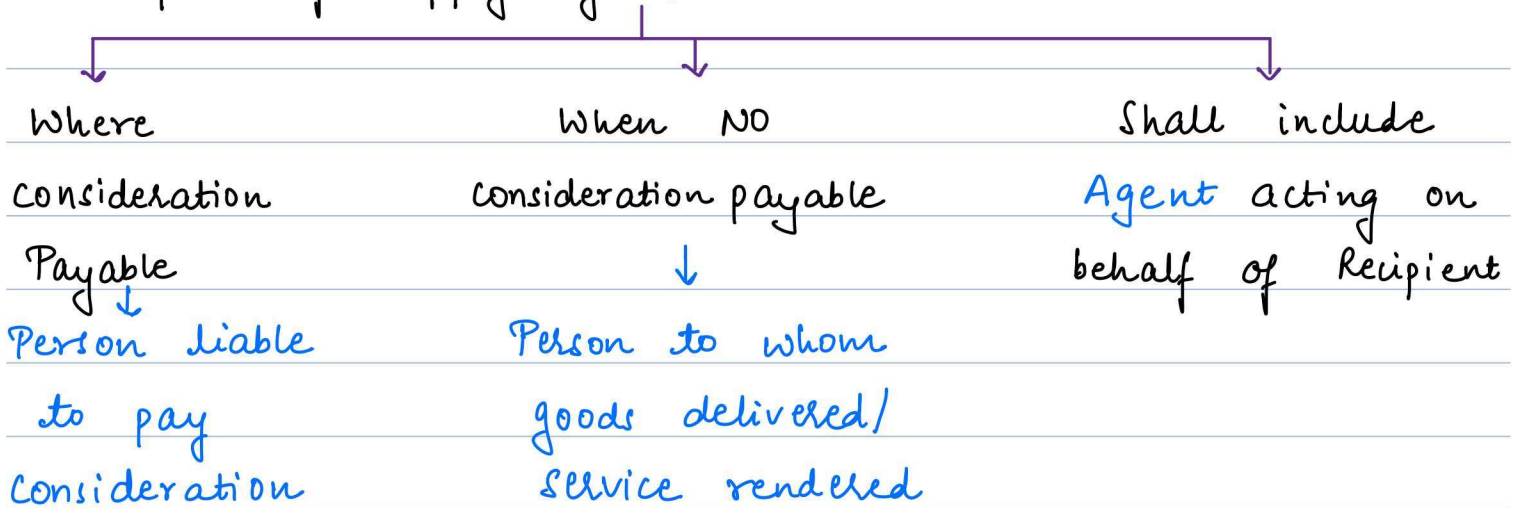 Where
consideration
Payable
Person liable
to pay
consideration
When NO
consideration payable
Person to whom
goods delivered/
service rendered
Shall include
Agent acting on
behalf of Recipient